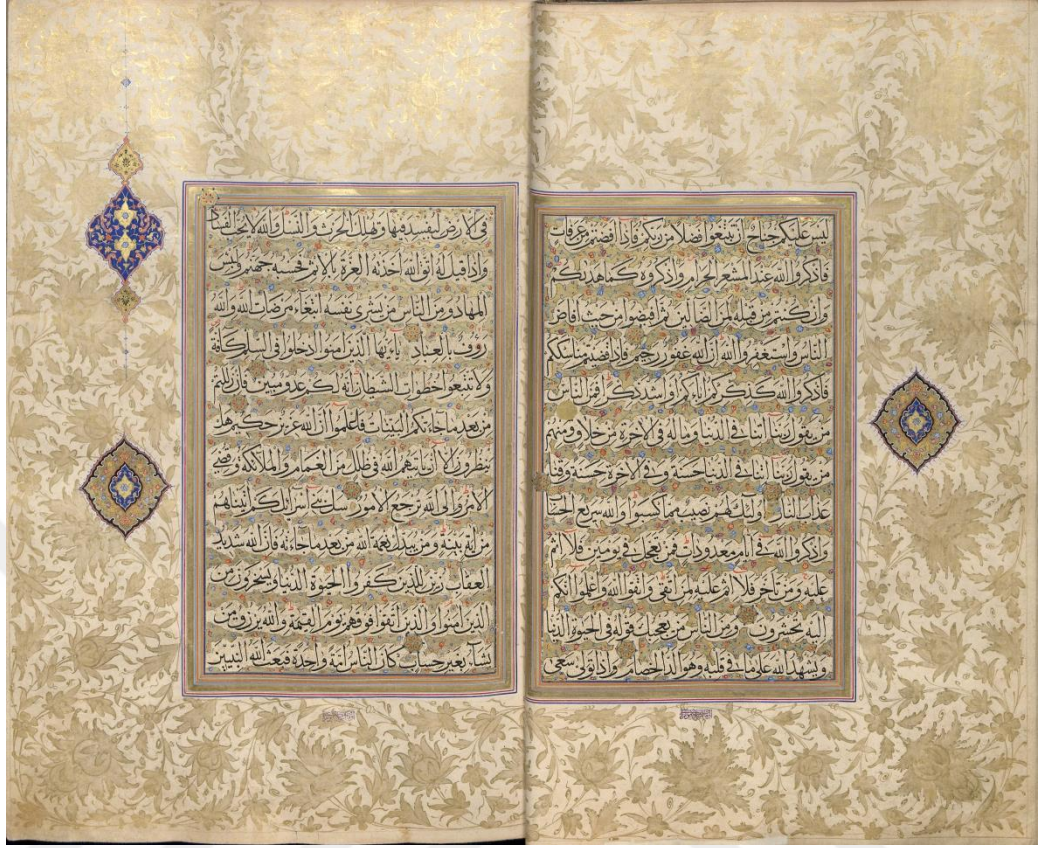 ليس عليكم جناح أن تبتغوا فضلا من ربكم فاذا أفضتم من عرفات
فاذكروا الله عند المشعر الحرام واذكروه كما هديكم
وان كنتم من قبله لمن الضالين ثم أفيضوا من حيث أفاض
الناس واستغفروا الله ان الله غفور رحيم فاذا قضيتم مناسككم
فاذكروا الله كذكركم اباءكم أو أشد ذكرا فمن الناس
من يقول ربنا اتنا في الدنيا وماله في الاخرة من خلاق ومنهم
من يقول ربنا اتنا في الدنيا حسنة وفي الاخرة حسنة وقنا
عذاب النار أولئك لهم نصيب مما كسبوا والله سريع الحساب
واذكروا الله في أيام معدودات فمن تعجل في يومين فلا اثم
عليه ومن تأخر فلا اثم عليه لمن اتقى واتقوا الله واعلموا أنكم
اليه تحشرون ومن الناس من يعجبك قوله في الحيوة الدنيا
ويشهد الله على ما في قلبه وهو ألد الخصام واذا تولى سعى
في الارض ليفسد فيها ويهلك الحرث والنسل والله لا يحب الفساد
واذا قيل له اتق الله أخذته العزة بالاثم فحسبه جهنم ولبئس
المهاد ومن الناس من يشري نفسه ابتغاء مرضات الله والله
رؤوف بالعباد يا أيها الذين امنوا ادخلوا في السلم كافة
ولا تتبعوا خطوات الشيطان انه لكم عدو مبين فان زللتم
من بعد ما جاءتكم البينات فاعلموا أن الله عزيز حكيم هل
ينظرون الا أن يأتيهم الله في ظلل من الغمام والملائكة وقضي
الامر والى الله ترجع الامور سل بني اسرائيل كم اتيناهم
من اية بينة ومن يبدل نعمة الله من بعد ما جاءته فان الله شديد
العقاب زين للذين كفروا الحيوة الدنيا ويسخرون من
الذين امنوا والذين اتقوا فوقهم يوم القيمة والله يرزق من
يشاء بغير حساب كان الناس امة واحدة فبعث الله النبيين